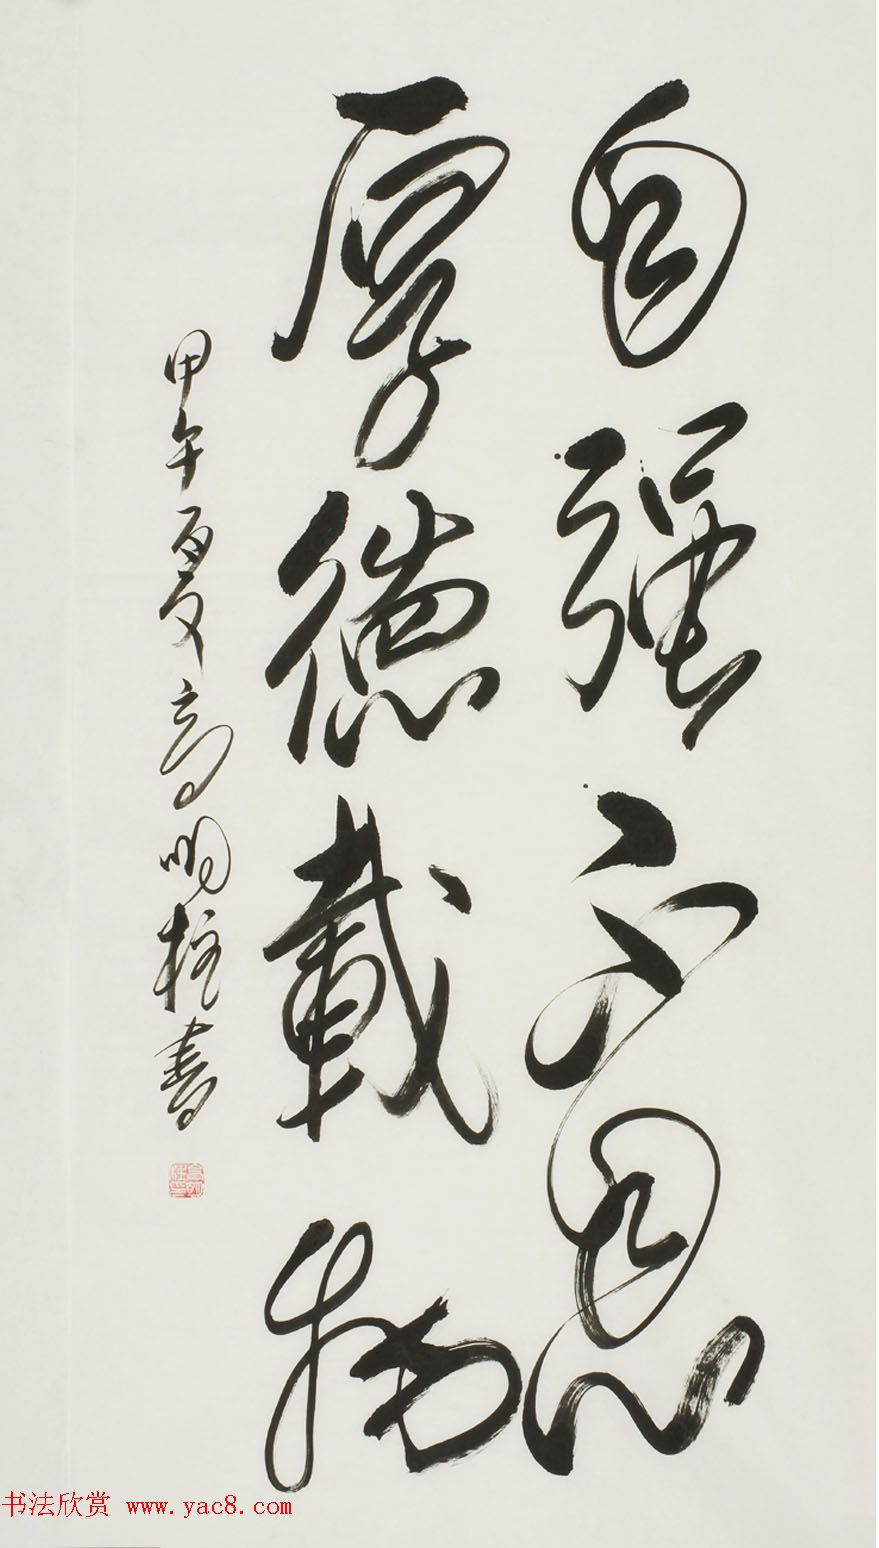 自强不息
厚德载物
甲午夏高明柱书
书法欣赏 www.yac8.com